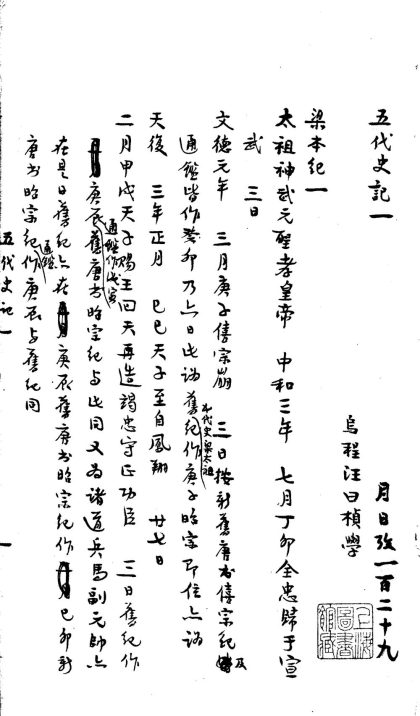 月日攷一百二十九
烏程汪曰楨學
五代史記一
梁本紀一
太祖神武元聖孝皇帝 中和三年 七月丁卯全忠歸于宣
武 三日
文德元年 三月庚子僖宗崩 三日按新舊唐書僖宗紀及
通鑑皆作癸卯乃六日此誤舊紀作庚子昭宗即位亦誤
五代史梁太祖
天復 三年正月 己巳天子至自鳳翔 廿七日
二月甲戌天子賜王回天再造竭忠守正功臣 三日舊紀作
通鑑作戊寅
庚辰舊唐書昭宗紀与此同又為諸道兵馬副元帥亦
在是日舊紀亦在庚辰舊唐書昭宗紀作己卯新
唐書昭宗紀作庚辰与舊紀同
通鑑
五代史記一
一
上海圖書館藏